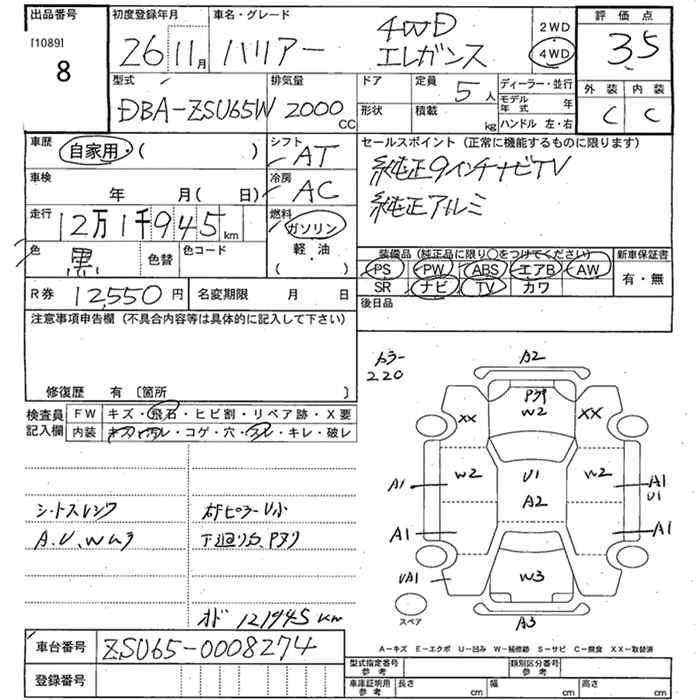 出品番号
[1089]
8
初度登録年月
26 11月
車名・グレード
ハリアー
4WD
エレガンス
2WD
4WD
評価点
3.5
外装 内装
C C
型式
DBA-ZSU65W
排気量
2000 CC
ドア
形状
定員
5人
積載
kg
ディーラー・並行
モデル年式 年
ハンドル 左・右
車歴
自家用・( )
シフト
AT
車検
年 月( 日)
冷房
AC
走行
12万1千945km
燃料
ガソリン
軽・油
( )
色
黒
色替
色コード
R券 12,550円
名変期限 月 日
セールスポイント (正常に機能するものに限ります)
純正9インチナビTV
純正アルミ
装備品(純正品に限り○をつけてください)
PS PW ABS エアB AW
SR ナビ TV カワ
新車保証書
有・無
後日品
注意事項申告欄(不具合内容等は具体的に記入して下さい)
修復歴 有〔箇所 〕
検査員記入欄
FW キズ・飛石・ヒビ割・リペア跡・X要
内装 キズ・汚レ・コゲ・穴・スレ・キレ・破レ
シートスレシワ
A.U、Wムラ
右Fピラー U小
下廻りサビ、Pヌリ
オド 121945km
カラー
220
A2
Pヌリ
W2
XX
XX
W2
U1
A2
W2
A1
A1
U1
A1
A1
UA1
W3
A3
スペア
A-キズ E-エクボ U-凹み W-補修跡 S-サビ C-腐食 XX-取替済
車台番号
ZSU65-0008274
登録番号
型式指定番号
参考
類別区分番号
参考
車庫証明用
参考
長さ cm
幅 cm
高さ cm